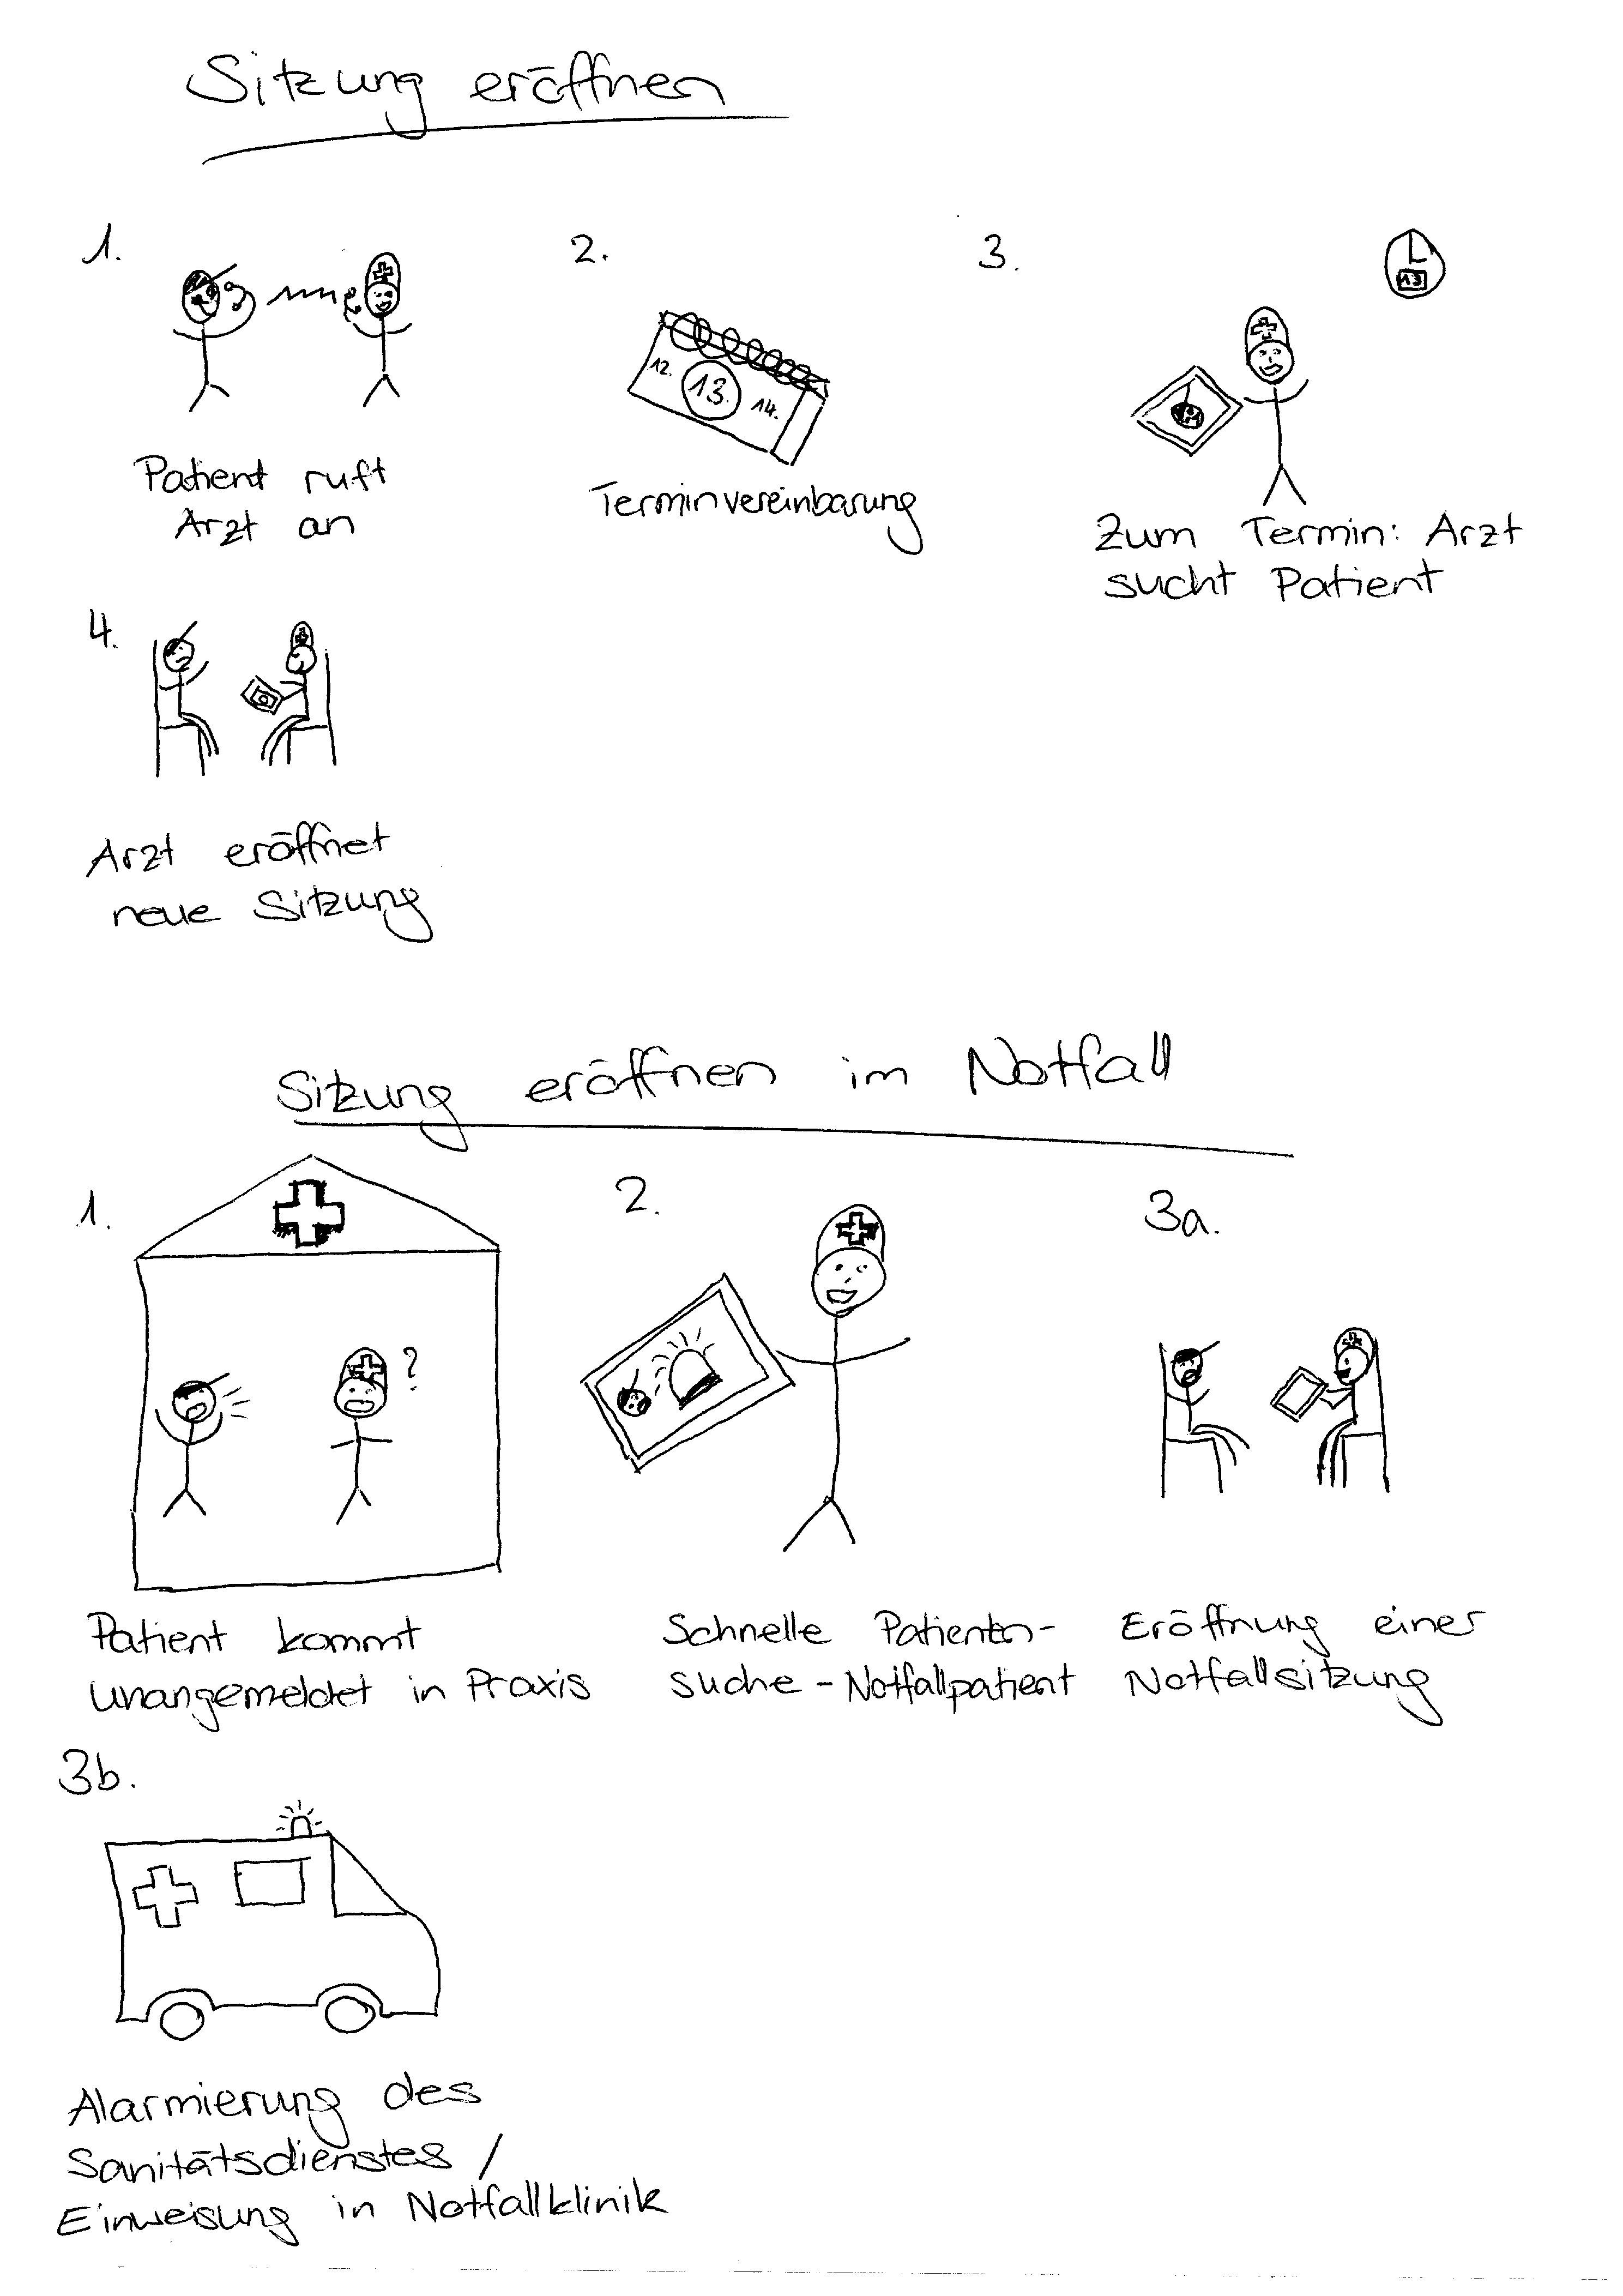 Sitzung eröffnen
1.
2.
3.
13
12.
13.
14.
Patient ruft
Arzt an
Terminvereinbarung
Zum Termin: Arzt
sucht Patient
4.
Arzt eröffnet
neue Sitzung
Sitzung eröffnen im Notfall
1.
2.
3a.
?
Patient kommt
unangemeldet in Praxis
Schnelle Patienten-
suche - Notfallpatient
Eröffnung einer
Notfallsitzung
3b.
Alarmierung des
Sanitätsdienstes /
Einweisung in Notfallklinik